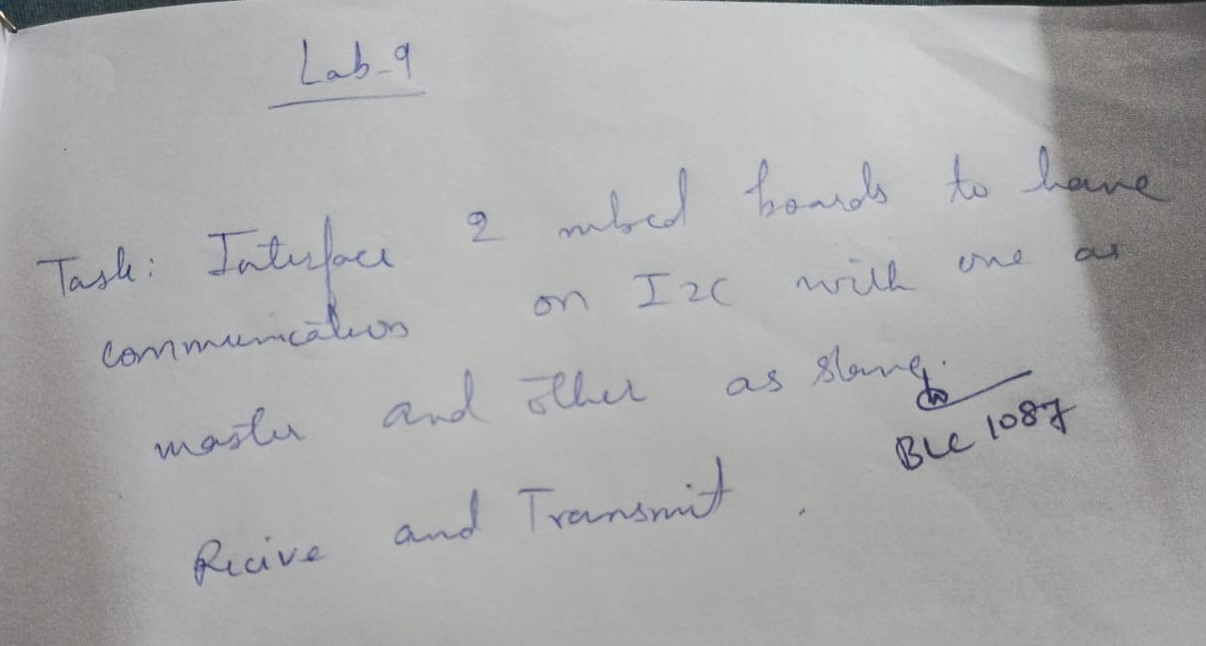 Lab-9
Task: Interface 2 mbed boards to have
communication on I2C with one as
master and other as slave.
BLC 1087
Recive and Transmit.